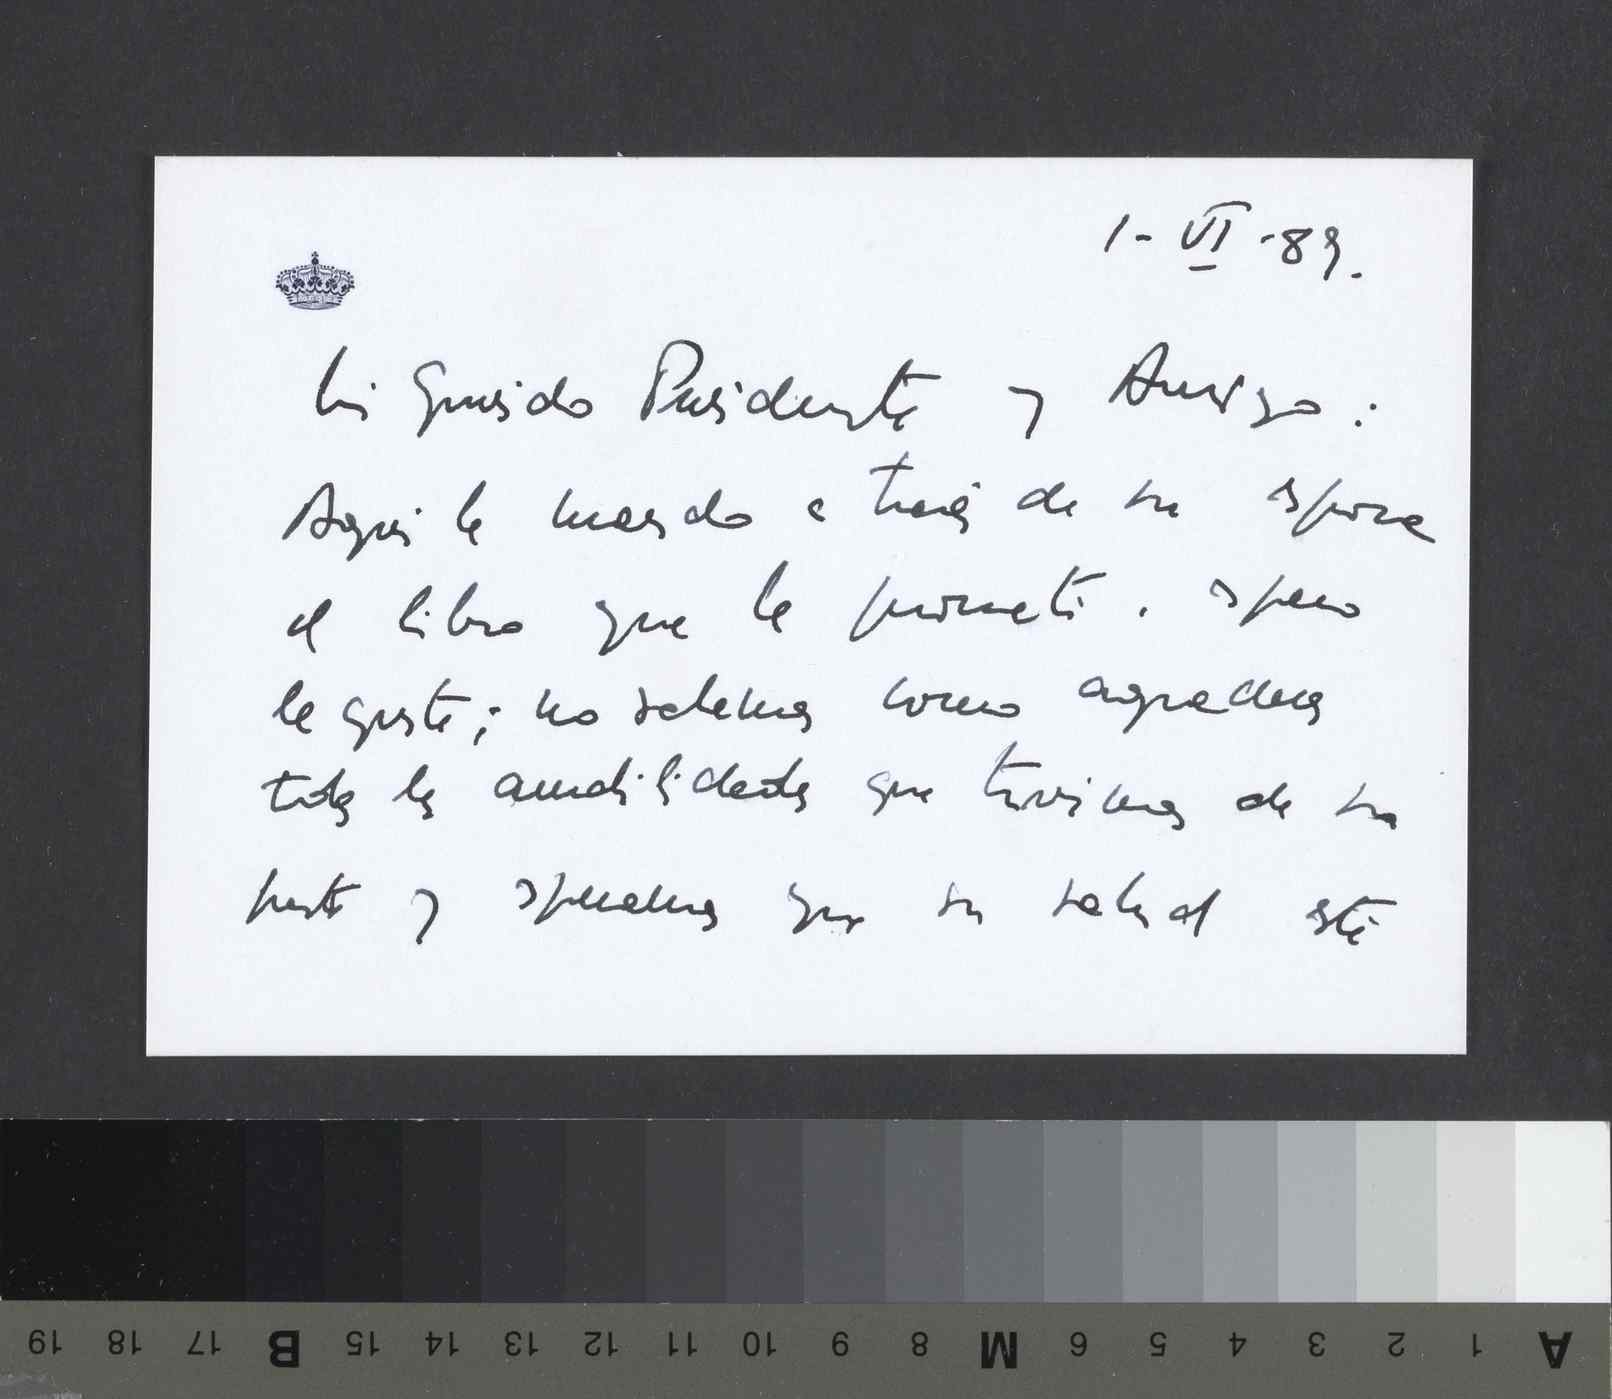 1-VI-89.
Mi Querido Presidente y Amigo:
Aquí le mando a través de su esposa
el libro que le prometí. espero
le guste; no sabemos como agradecer
todas las amabilidades que tuvimos de su
parte y esperamos que su salud esté
19 18 17 B 15 14 13 12 11 10 9 8 M 6 5 4 3 2 1 A